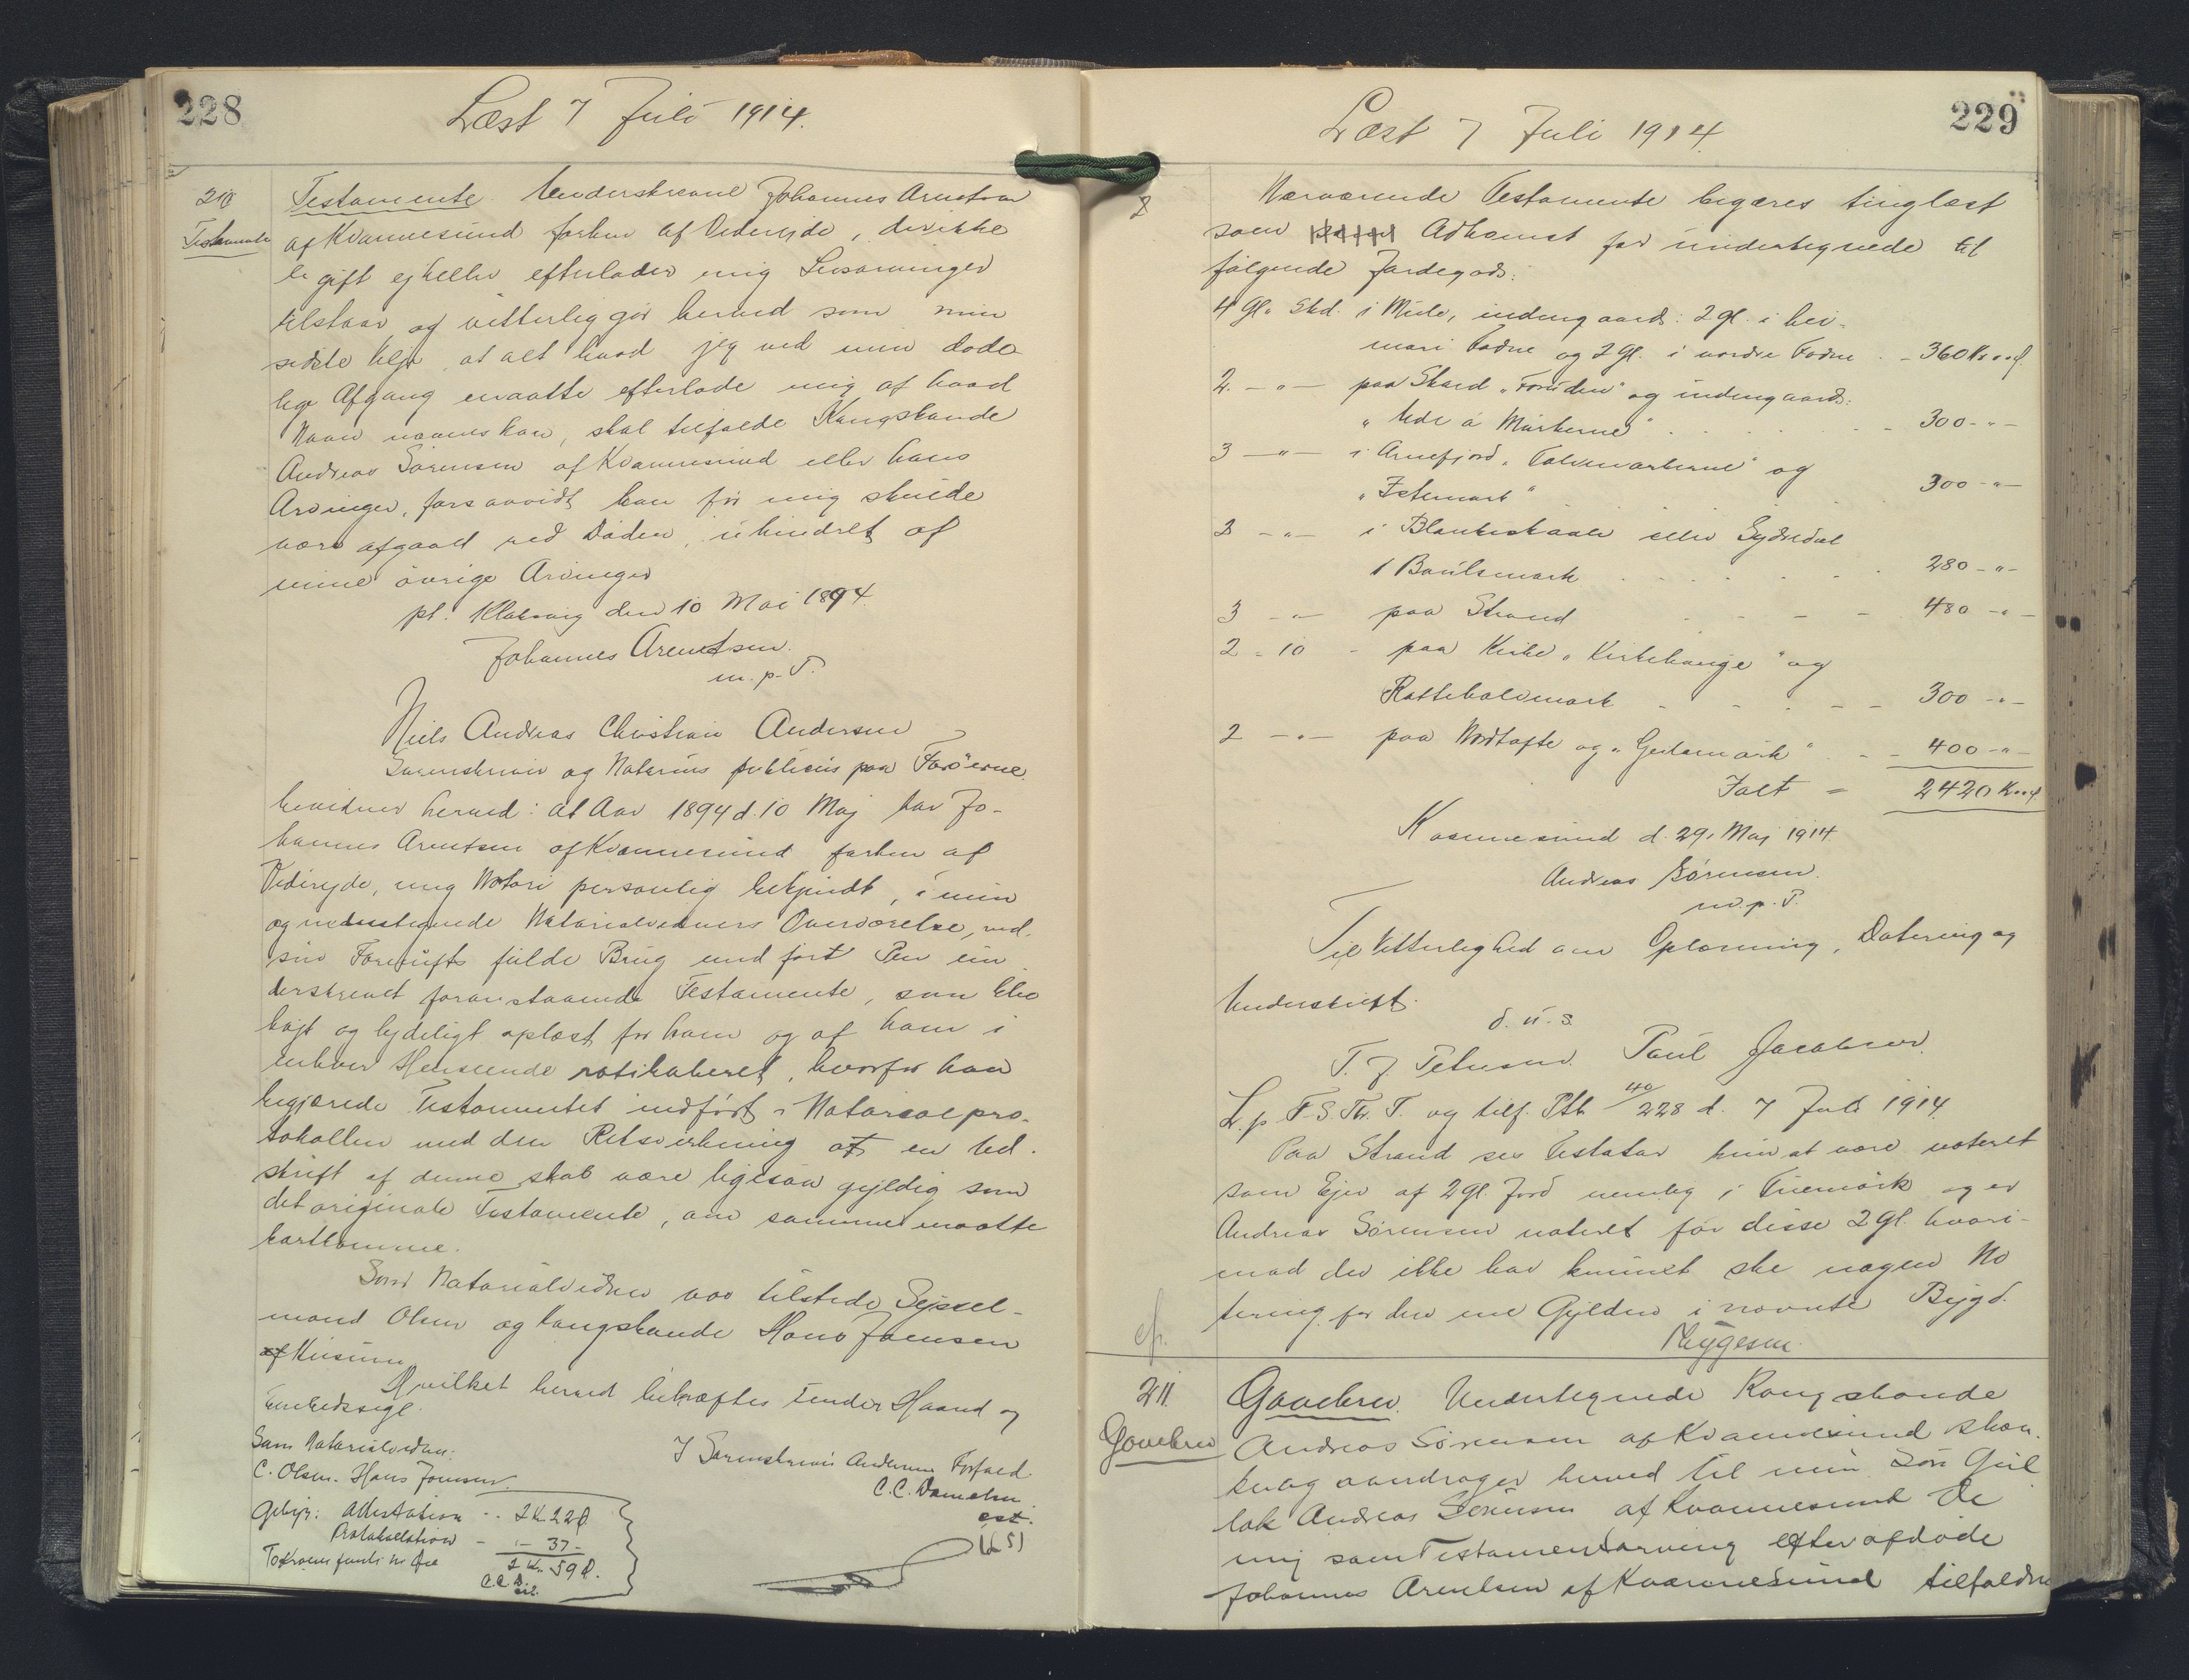 228
Læst 7 Juli 1914.
210
Testamente
Testamente. Underskrevne Johannes Arentsen
af Kvannesund forhen af Viderejde, der ikke
er gift ej heller efterlader mig Livsarvinger
tilstaar og vitterliggør herved som min
sidste Vilje, at alt hvad jeg ved min døde-
lige Afgang maatte efterlade mig af hvad
Navn nævnes kan, skal tilfalde Kongsbonde
Andreas Sørensen af Kvannesund eller hans
Arvinger, forsaavidt han før mig skulde
være afgaaet ved Døden, uhindret af
mine øvrige Arvinger
pt. Klaksvig den 10 Mai 1894.
Johannes Arentsen.
m. p. P.
Niels Andreas Christian Andersen
Sorenskriver og Notarius publicus paa Færøerne
bevidner herved: at Aar 1894 d. 10 Maj har Jo-
hannes Arentsen af Kvannesund forhen af
Viderejde, mig Notari personlig bekjendt, i min
og medunderskrevne Notarialvidners Overværelse, ved
sin Fornufts fulde Brug med ført Pen un
derskrevet foranstaaende Testamente, som blev
højt og lydeligt oplæst for ham og af ham i
enhver Henseende ratihaberet, hvorfor han
begjærede Testamentet indført i Notarialpro-
tokollen med den Retsvirkning at en Ud-
skrift af denne skal være ligesaa gyldig som
det originale Testamente, om samme maatte
bortkomme.
Som Notarialvidner var tilstede Syssel-
mand Olsen og Kongsbonde Hans Joensen
af Kunsunn
Hvilket herved bekræftes under Haand og
Embedssegl.
Som Notarialvidner:
C. Olsen. Hans Joensen
I Sorenskriver Andersens Forfald
C. C. Danielsen
cst.
(LS)
Gebyr: Attestation - - 2 K 22 Ø
Protokollation - 1 - 37 -
2 Kr. 59 Ø.
To Kroner femti ni Øre
C. C. D.
229
Læst 7 Juli 1914.
Nærværende Testamente begæres tinglæst
som Adkomst for undertegnede til
følgende Jordegods:
4 Gl. Skd. i Mule, indengaards: 2 gl. i hei-
mari Todne og 2 Gl. i nordre Todne - - 360 Kr. ad.
2 - " - paa Skard "Foruden" og indengaards:
" Ude á Mørkerne" - - - - - - 300 - " -
3 - " - i Arnefjord "Tolvmarkerne" og
"Istemark" 300 - " -
3 - " - i Blankeskaale eller Sydredal
i Bøulsmark - - - - - 280 - " -
3 - " - paa Strand - - - - 480 - " -
2 - 10 - paa Kirke "Kirkehauge" og
Rottehalemark - - - - - 300 - " -
2 - " - paa Nordtofte og "Geilamørk" - - 400 - " -
Ialt = 2420 Kr. ad.
Kvannesund d. 29. Maj 1914.
Andreas Sørensen.
m. p. P.
Til Vitterlighed om Oplæsning, Datering og
Underskrift.
d. u. s.
T. J. Petersen. Poul Jacobsen.
L. p. F. S. Th. T. og tilf. Ptk 40/228 d. 7 Juli 1914
Paa Strand ses Testator kun at være noteret
som Ejer af 2 gl. Jord nemlig i Tuemørk og er
Andreas Sørensen noteret for disse 2 Gl. hvori-
mod der ikke har kunnet ske nogen No
tering for den ene Gylden i nævnte Bygd.
Nygesen.
cfr.
211.
Gavebrev
Gavebrev. Undertegnede Kongsbonde
Andreas Sørensen af Kvannesund skæn-
ker og overdrager herved til min Søn Guil
lak Andreas Sørensen af Kvannesund de
mig som Testamentarving efter afdøde
Johannes Arentsen af Kvannesund tilfaldne